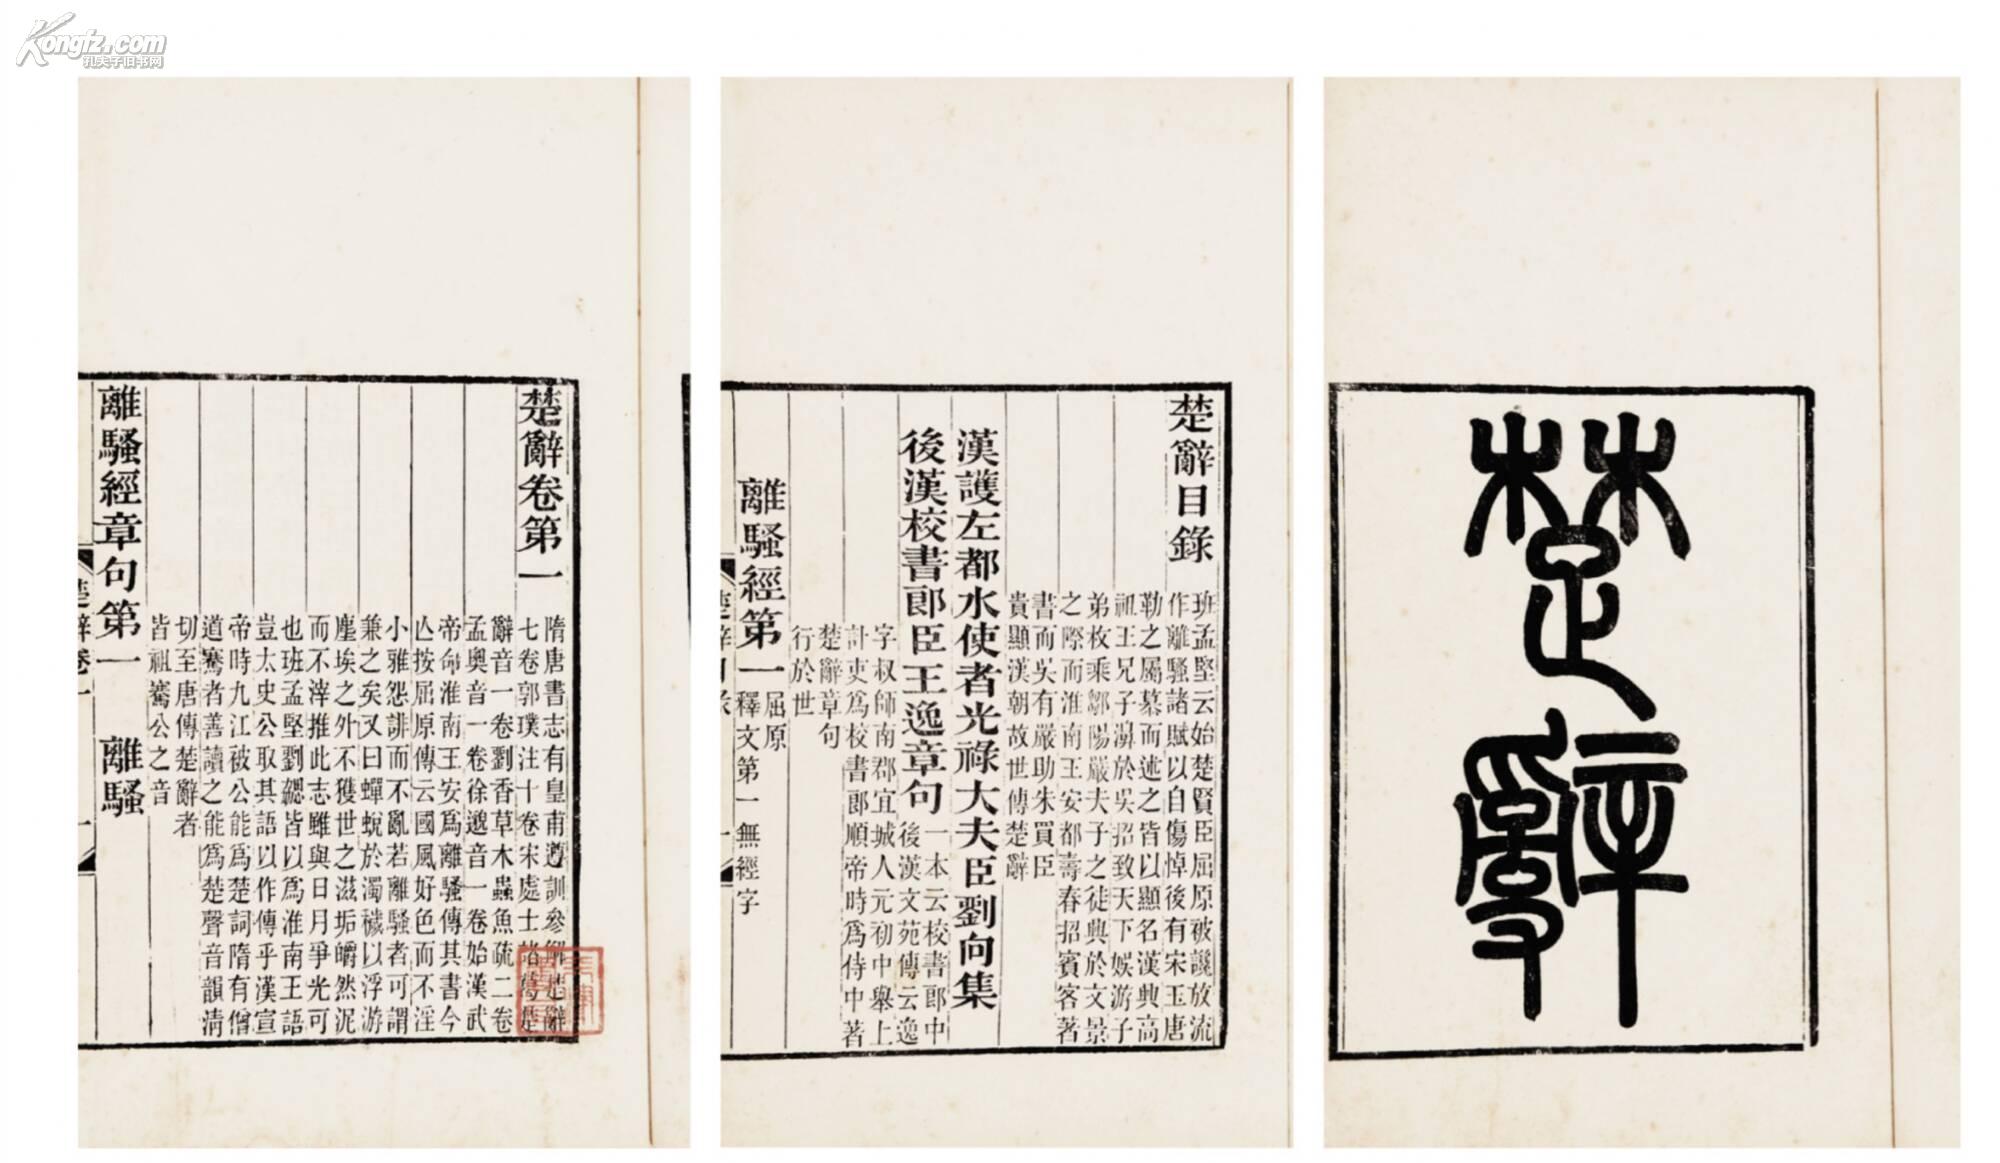 Kongfz.com
孔夫子旧书网
楚辭
楚辭目錄
班孟堅云始楚賢臣屈原被讒放流
作離騷諸賦以自傷悼後有宋玉唐
勒之屬慕而述之皆以顯名漢興高
祖王兄子濞於吳招致天下娛游子
弟枚乘鄒陽嚴夫子之徒興於文景
之際而淮南王安都壽春招賓客著
書而吳有嚴助朱買臣
貴顯漢朝故世傳楚辭
漢護左都水使者光祿大夫臣劉向集
後漢校書郎臣王逸章句
一本云校書郎中
後漢文苑傳云逸
字叔師南郡宜城人元初中舉上
計吏爲校書郎順帝時爲侍中著
楚辭章句
行於世
離騷經第一
屈原
釋文第一無經字
楚辭目錄
一
楚辭卷第一
隋唐書志有皇甫遵訓參解楚辭
七卷郭璞注十卷宋處士諸葛楚
辭音一卷劉香草木蟲魚疏二卷
孟奧音一卷徐邈音一卷始漢武
帝命淮南王安爲離騷傳其書今
亾按屈原傳云國風好色而不淫
小雅怨誹而不亂若離騷者可謂
兼之矣又曰蟬蛻於濁穢以浮游
塵埃之外不獲世之滋垢皭然泥
而不滓推此志雖與日月爭光可
也班孟堅劉勰皆以爲淮南王語
豈太史公取其語以作傳乎漢宣
帝時九江被公能爲楚詞隋有僧
道騫者善讀之能爲楚聲音韻清
切至唐傳楚辭者
皆祖騫公之音
離騷經章句第一 離騷
楚辭卷一
一